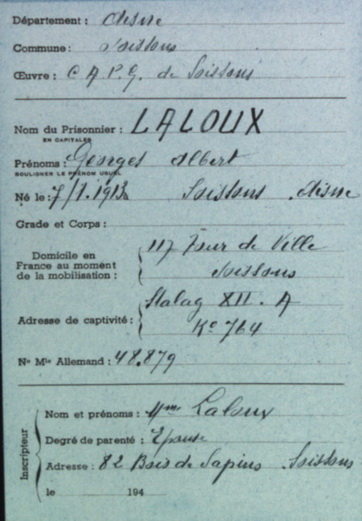 Département : Aisne
Commune : Soissons
Œuvre : C A P. G. de Soissons
Nom du Prisonnier : LALOUX
EN CAPITALES
Prénoms : Georges Albert
SOULIGNER LE PRÉNOM USUEL
Né le : 7/1.1913 Soissons Aisne
Grade et Corps :
Domicile en France au moment de la mobilisation : 117 de Ville
Soissons
Adresse de captivité : Stalag XII. A
Kº 764
Nº Mle Allemand : 48.879
Inscripteur
Nom et prénoms : Mme Laloux
Degré de parenté : Epouse
Adresse : 82 Bois de Sapins Soissons
le 194